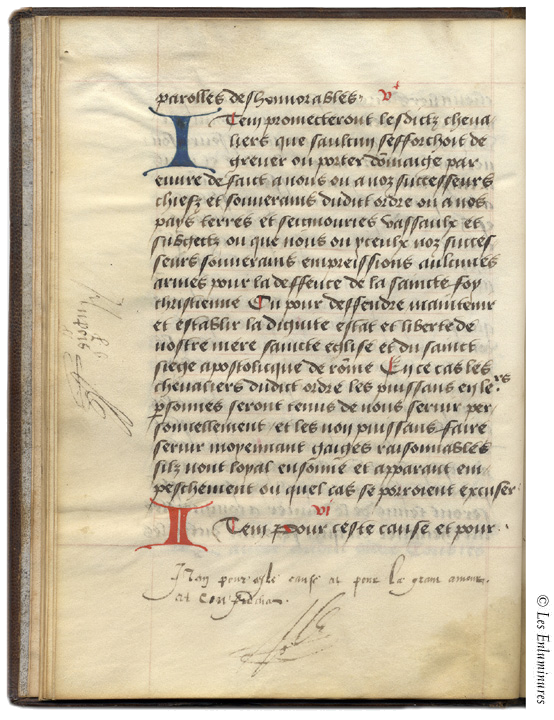 parolles deshonnorables· v⁺
Item promecteront lesdictz cheva
liers que saulcun sefforchoit de
grever ou porter dommaige par
euvre de faict a nous ou a noz successeurs
chiefz et souverains dudit ordre ou a nos
pays terres et seignouries vassaulx et
subgectz ou que nous ou yceulx noz succes
seurs souverains empreissions aulcunes
armes pour la deffence de la saincte foy
christienne Ou pour deffendre maintenir
et establir la dignite estat et liberte de
nostre mere saincte eglise et du sainct
siege apostolicque de rome En ce cas les
chevaliers dudict ordre les puissans en le rs
psonnes seront tenus de nous servir per
sonnellement et les non puissans faire
servir moyennant gaiges raisonnables
silz nont loyal ensonne et apparant em
peschement ou quel cas se porroient excuser
vi
Item pour ceste cause et pour·
Item pour ceste cause et pour la grant amour
et
© Les Enluminures